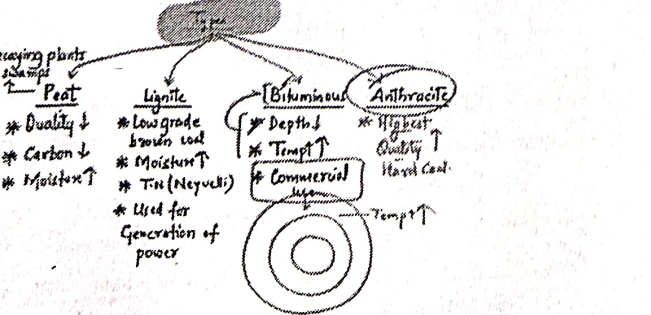 Types
decaying plants
swamps
Peat
* Quality ↓
* Carbon ↓
* Moisture ↑
Lignite
* Low grade
brown coal
* Moisture ↑
* T.N (Neyveli)
* Used for
Generation of
power
[Bituminous
* Depth ↓
* Tempt ↑
* Commercial
use
Tempt ↑
Anthracite
* Highest
Quality ↑
Hard Coal.